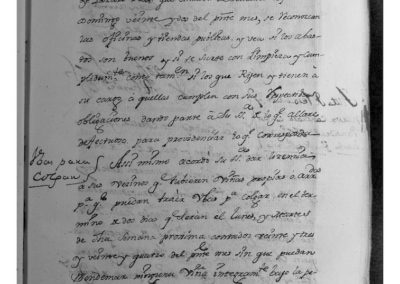 Domingo veinte y dos del pnte mes, se reconozcan
las oficinas y tiendas publicas, y vea si los abas-
tos son buenos y si se sirve con Limpieza y cum-
plidamte como tamn si los que Rijen y tienen à
su cargo à quellas cumplen con sus respectivas
obligaciones dando parte a Su Sa de lo qe allare
defectuoso para providenciar lo qe corresponda
Ubas para
Colgar
Assi mismo acordó su Sa dar licencia
a sus vecinos qe tubieren Viñas propias o arrdas
pa qe puedan traer Ubas pa colgar, en el ter-
mino de dos dias qe seran el lunes, y Martes
de dha Semana proxima contados veinte y tres
y veinte y quatro del pnte mes sin que puedan
Vendemar ninguna Viña integramte bajo la pe-